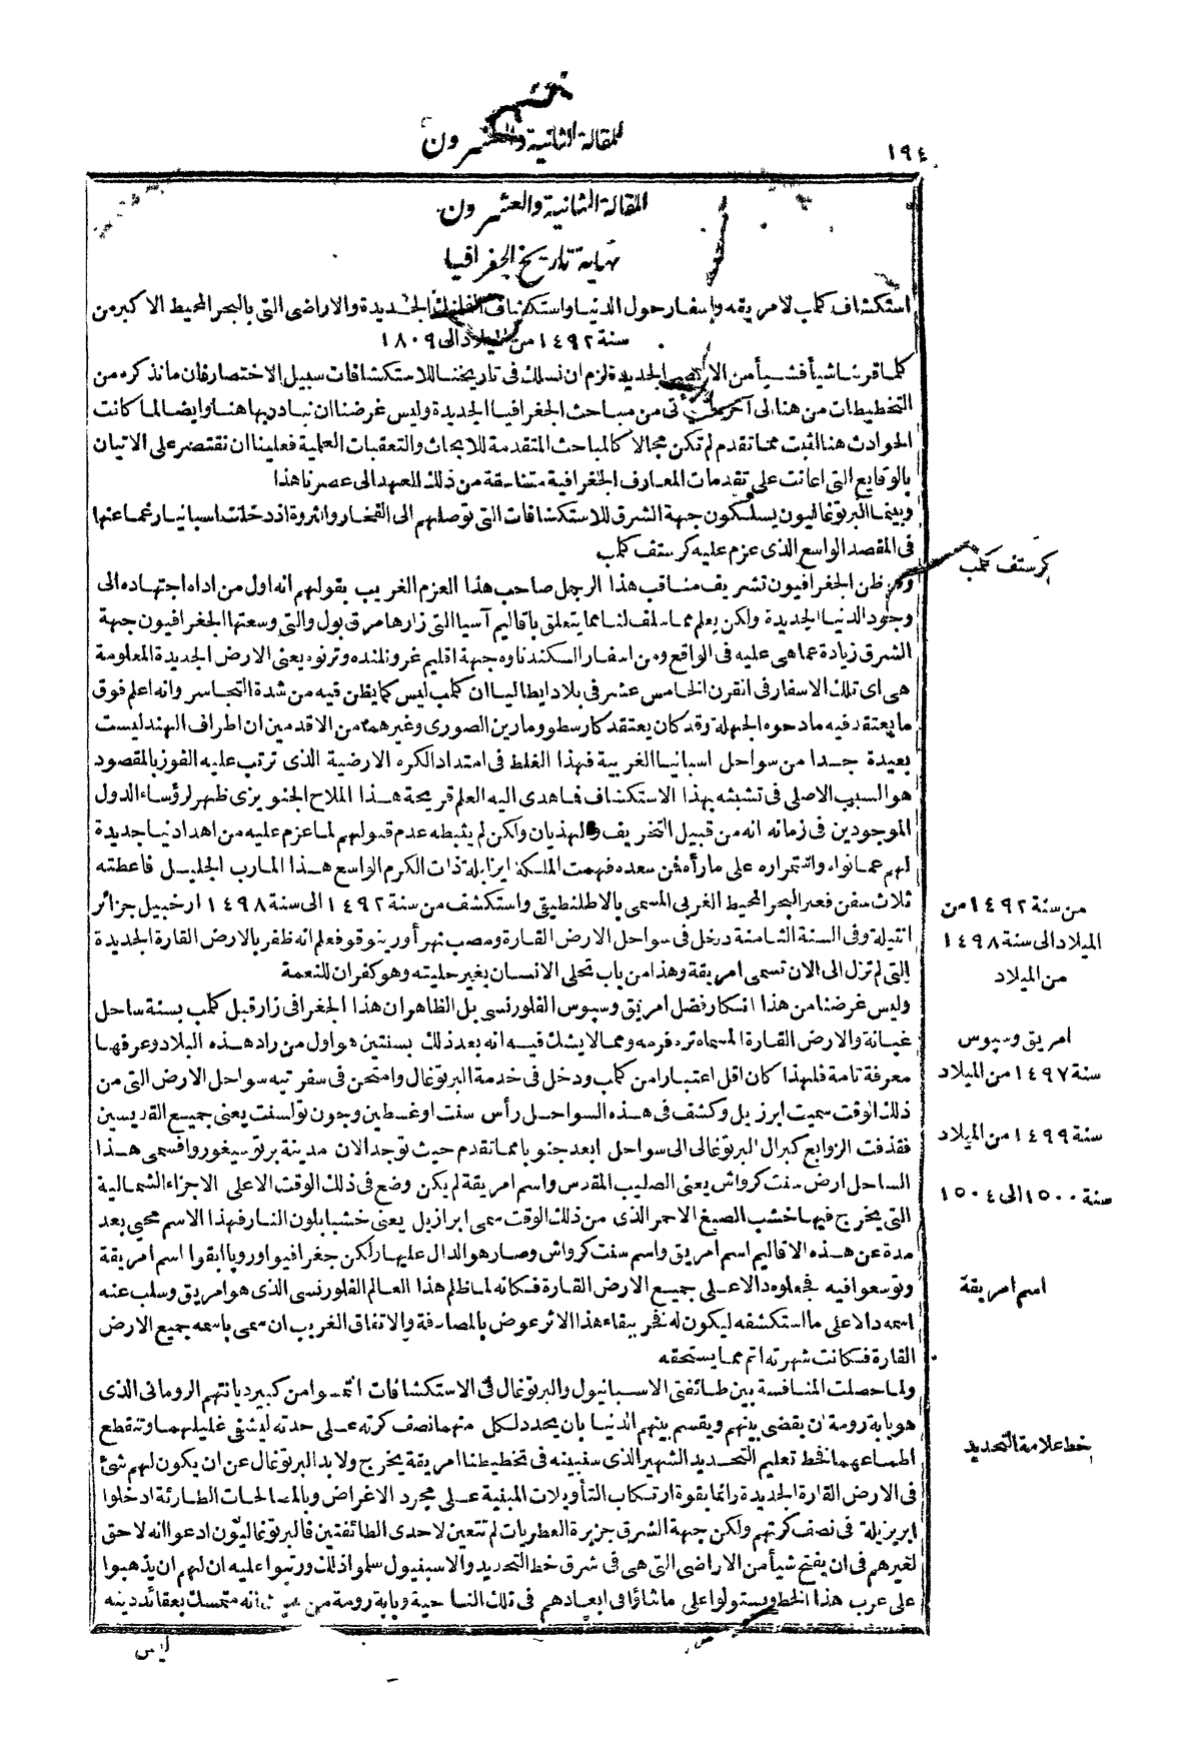 ١٩٤
المقالة الثانية والعشرون
المقالة الثانية والعشرون
نهاية تاريخ الجغرافيا
استكشاف كلمب لامريقه واسفار حول الدنيا واستكشاف الجديدة والاراضى التى بالبحر المحيط الاكبر من
سنة ١٤٩٢ من الميلاد الى ١٨٠٩
كلما قربنا شيأ فشيأ من الارض الجديدة لزم ان نسلك فى تاريخنا للاستكشافات سبيل الاختصار فان ما نذكره من
التخطيطات من هنا الى آخر يأتى من مباحث الجغرافيا الجديدة وليس غرضنا ان نبادر بها هنا وايضا لما كانت
الحوادث هنا اثبت مما تقدم لم تكن مجالا كالمباحث المتقدمة للابحاث والتعقبات العلمية فعلينا ان نقتصر على الاتيان
بالوقايع التى اعانت على تقدمات المعارف الجغرافية متناسقة من ذلك العهد الى عصرنا هذا
وبينما البرتوغاليون يسلكون جهة الشرق للاستكشافات التى توصلهم الى الفخار والثروة اذ دخلت اسبانيا رغما عنها
فى المقصد الواسع الذى عزم عليه كرستف كلمب
كرستف كلمب
وقد ظن الجغرافيون تشريف مناقب هذا الرجل صاحب هذا العزم الغريب بقولهم انه اول من اداه اجتهاده الى
وجود الدنيا الجديدة ولكن يعلم مما سلف لنا مما يتعلق باقاليم آسيا التى زارها مرق بول والتى وسعتها الجغرافيون جهة
الشرق زيادة عما هى عليه فى الواقع ومن اسفار السكندناوه جهة اقليم غرونلنده وترنوه يعنى الارض الجديدة المعلومة
هى اى تلك الاسفار فى القرن الخامس عشر فى بلاد ايطاليا ان كلمب ليس كما يظن فيه من شدة التجاسر وانه اعلم فوق
ما يعتقد فيه مادحوه الجهلة وقد كان يعتقد كارسطو ومارين الصورى وغيرهما من الاقدمين ان اطراف الهند ليست
بعيدة جدا من سواحل اسبانيا الغربية فهذا الغلط فى امتداد الكره الارضية الذى ترتب عليه الفوز بالمقصود
هو السبب الاصلى فى تشبثه بهذا الاستكشاف فما هدى اليه العلم قريحة هذا الملاح الجنويزى ظهر لرؤساء الدول
الموجودين فى زمانه انه من قبيل التخريف والهذيان ولكن لم يثبطه عدم قبولهم لما عزم عليه من اهداء دنيا جديدة
لهم عما نواه واستمراره على ما رأه فمن سعده فهمت الملكة ايزابله ذات الكرم الواسع هذا المارب الجليل فاعطته
ثلاث سفن فعبر البحر المحيط الغربى المسمى بالاطلنطيقى واستكشف من سنة ١٤٩٢ الى سنة ١٤٩٨ ارخبيل جزائر
من سنة ١٤٩٢ من
انتيلة وفى السنة الثامنة دخل فى سواحل الارض القارة ومصب نهر أورينوقو فعلم انه ظفر بالارض القارة الجديدة
الميلاد الى سنة ١٤٩٨
التى لم تزل الى الان تسمى امريقة وهذا من باب تحلى الانسان بغير حليته وهو كفران للنعمة
من الميلاد
وليس غرضنا من هذا انكار فضل امريق وسبوس الفلورنسى بل الظاهر ان هذا الجغرافى زار قبل كلمب بسنة ساحل
غيانة والارض القارة المسماة تره فرمه ومما لا يشك فيه انه بعد ذلك بسنتين هو اول من راد هذه البلاد وعرفها
امريق وسبوس
معرفة تامة فلهذا كان اقل اعتبارا من كلمب ودخل فى خدمة البرتوغال وامتحن فى سفرتيه سواحل الارض التى من
سنة ١٤٩٧ من الميلاد
ذلك الوقت سميت ابرزيل وكشف فى هذه السواحل رأس سنت اوغسطين وجون تواسنت يعنى جميع القديسين
فقذفت الزوابع كبرال البرتوغالى الى سواحل ابعد جنوبا مما تقدم حيث توجد الان مدينة برتو سيغورو فسمى هذا
سنة ١٤٩٩ من الميلاد
الساحل ارض سنت كرواش يعنى الصليب المقدس واسم امريقة لم يكن وضع فى ذلك الوقت الاعلى الاجزاء الشمالية
سنة ١٥٠٠ الى ١٥٠٤
التى يخرج فيها خشب الصبغ الاحمر الذى من ذلك الوقت سمى ابرازيل يعنى خشبا بلون النار فهذا الاسم محى بعد
مدة عن هذه الاقاليم اسم امريق واسم سنت كرواش وصار هو الدال عليها ولكن جغرافيوا اوروپا ابقوا اسم امريقة
وتوسعوا فيه فجعلوه دالا على جميع الارض القارة فكانه لما ظلم هذا العالم الفلورنسى الذى هو امريق وسلب عنه
اسم امريقة
اسمه دالا على ما استكشفه ليكون له فخر ببقاء هذا الاثر عوض بالمصادفة والاتفاق الغريب ان سمى باسمه جميع الارض
القارة فكانت شهرته اتم مما يستحقه
ولما حصلت المنافسة بين طائفتى الاسبانيول والبرتوغال فى الاستكشافات التمسوا من كبير ديانتهم الرومانى الذى
هو بابة رومة ان يقضى بينهم ويقسم بينهم الدنيا بان يحدد لكل منهما نصف كرته على حدته ليشفى غليلهما وتنقطع
اطماعهما فخط تعليم التحديد الشهير الذى سنبينه فى تخطيطنا امريقة يخرج ولا بد البرتوغال عن ان يكون لهم شئ
خط علامة التحديد
فى الارض القارة الجديدة وانما بقوة ارتكاب التأويلات المبنية على مجرد الاغراض وبالمصالحات الطارئة ادخلوا
ابريزيلة فى نصف كرتهم ولكن جهة الشرق جزيرة العطريات لم تتعين لاحدى الطائفتين فالبرتوغاليون ادعوا انه لا حق
لغيرهم فى ان يفتح شيأ من الاراضى التى هى فى شرق خط التحديد والاسبنيول سلموا ذلك ورتبوا عليه ان لهم ان يذهبوا
على غرب هذا الخط ويستولوا على ما شاؤا فى ابعادهم فى تلك الناحية وبابة رومة من حيث انه متمسك بعقائد دينه
ليس